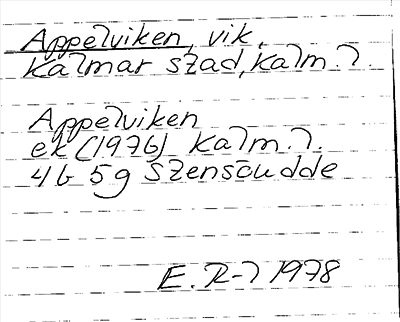 Appelviken, vik,
Kalmar stad, Kalm. l.
Appelviken
ek (1976) Kalm. l.
4G 5g Stensöudde
E. R-l 1978